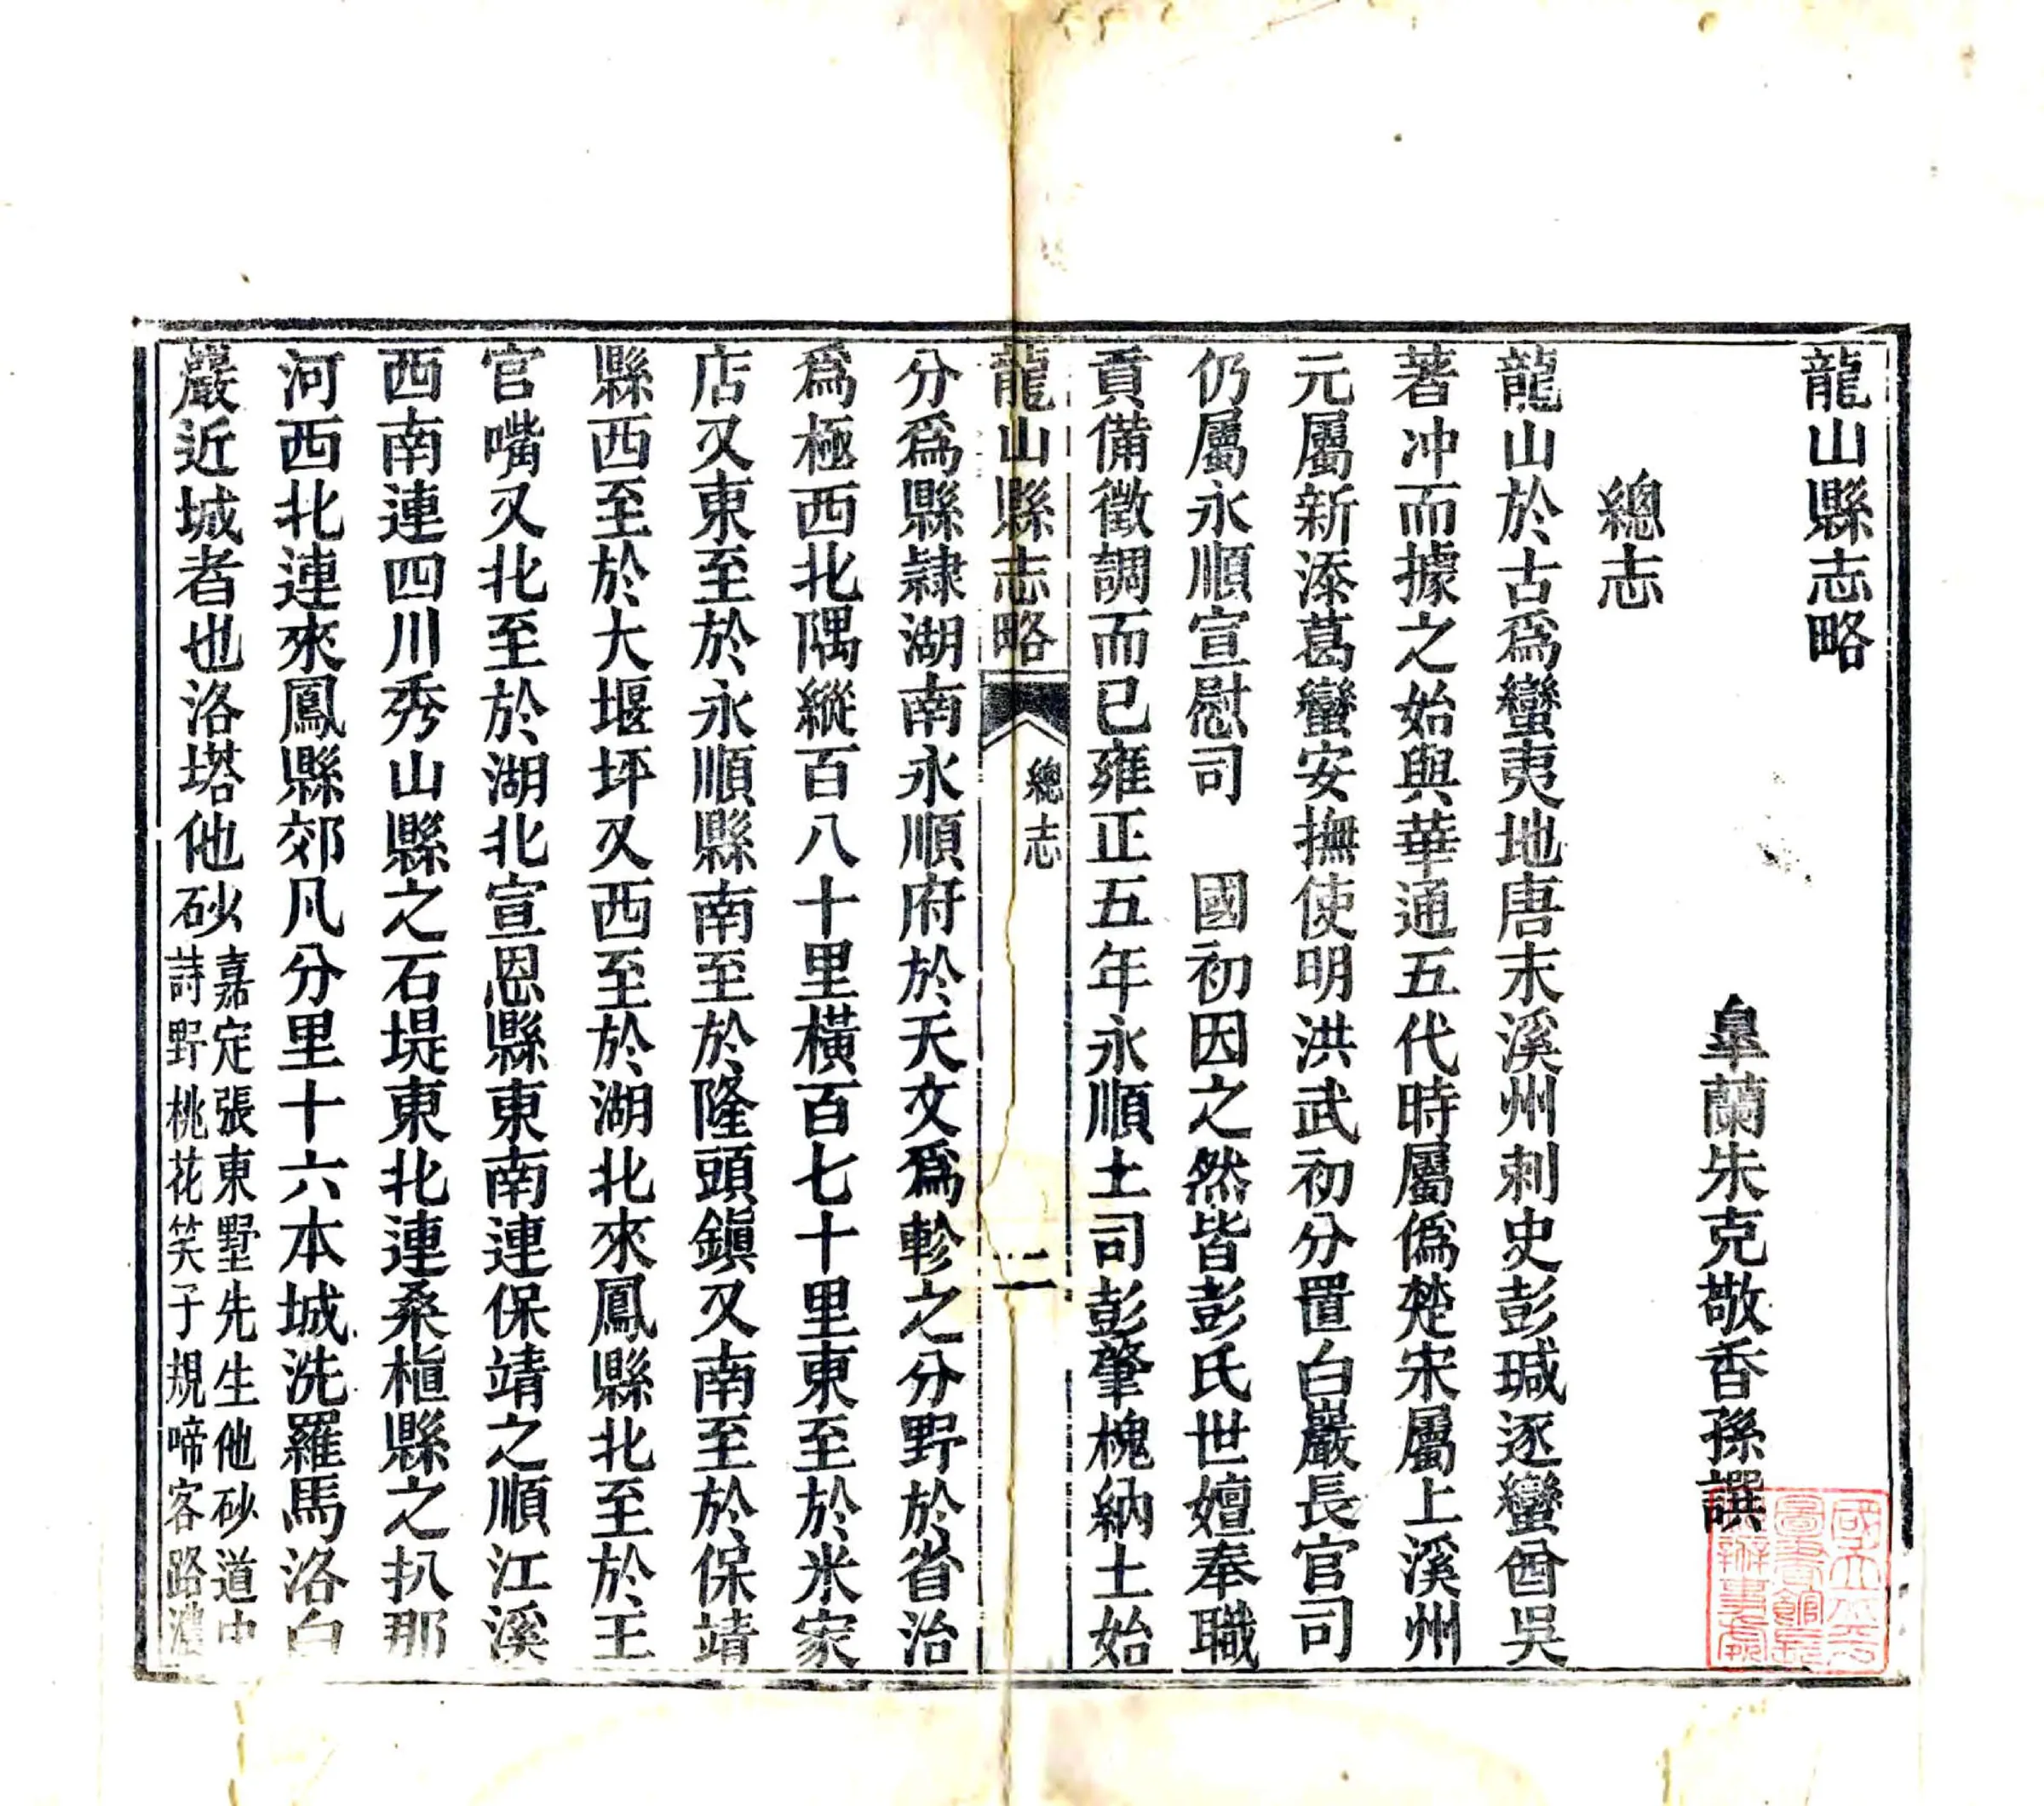 龍山縣志略
皐蘭朱克敬香孫譔
總志
龍山於古爲蠻夷地唐末溪州刺史彭瑊逐蠻酋吳
著冲而據之始與華通五代時屬僞楚宋屬上溪州
元屬新添葛蠻安撫使明洪武初分置白巖長官司
仍屬永順宣慰司　國初因之然皆彭氏世嬗奉職
貢備徵調而已雍正五年永順土司彭肇槐納土始
龍山縣志略　總志　二
分爲縣隷湖南永順府於天文爲軫之分野於省治
爲極西北隅縱百八十里橫百七十里東至於米家
店又東至於永順縣南至於隆頭鎭又南至於保靖
縣西至於大堰坪又西至於湖北來鳳縣北至於王
官嘴又北至於湖北宣恩縣東南連保靖之順江溪
西南連四川秀山縣之石堤東北連桑植縣之扒那
河西北連來鳳縣郊凡分里十六本城洗羅馬洛白
巖近城者也洛塔他砂
嘉定張東墅先生他砂道中
詩野桃花笑子規啼客路濃
國立北平
圖書館長
辦事處